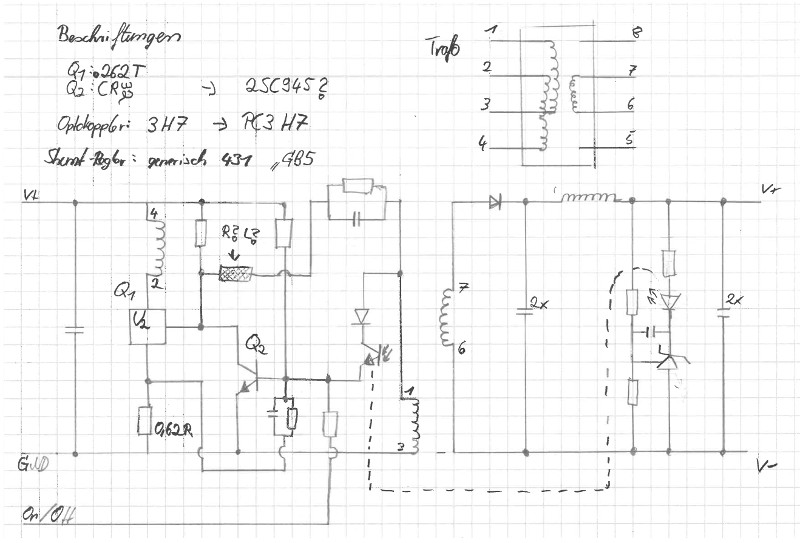 Beschriftungen
Q1: 262T
Q2: CR → 2SC945?
Optokoppler: 3H7 → PC3H7
Shunt-Regler: generisch 431 „GB5
Trafo
1 8
2 7
3 6
4 5
V+
4
R? L?
2
Q1
V2
Q2
0,62R
GND
On/Off
1
3
7
6
2x
2x
V+
V-